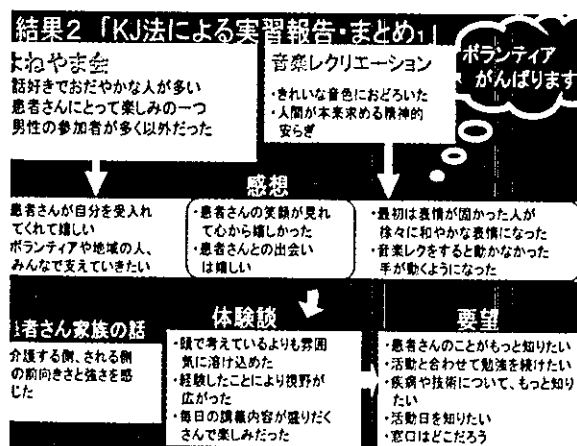 結果2 「KJ法による実習報告・まとめ1」
よねやま会
話好きでおだやかな人が多い
患者さんにとって楽しみの一つ
男性の参加者が多く以外だった
音楽レクリエーション
・きれいな音色におどろいた
・人間が本来求める精神的
安らぎ
ボランティア
がんばります
感想
患者さんが自分を受入れ
てくれて嬉しい
ボランティアや地域の人、
みんなで支えていきたい
・患者さんの笑顔が見れ
て心から嬉しかった
・患者さんとの出会い
は嬉しい
・最初は表情が固かった人が
徐々に和やかな表情になった
・音楽レクをすると動かなかった
手が動くようになった
患者さん家族の話
介護する側、される側
の前向きさと強さを感
じた
体験談
・頭で考えているよりも雰囲
気に溶け込めた
・経験したことにより視野が
広がった
・毎日の講義内容が盛りだく
さんで楽しみだった
要望
・患者さんのことがもっと知りたい
・活動と合わせて勉強を続けたい
・疾病や技術について、もっと知り
たい
・活動日を知りたい
・窓口はどこだろう